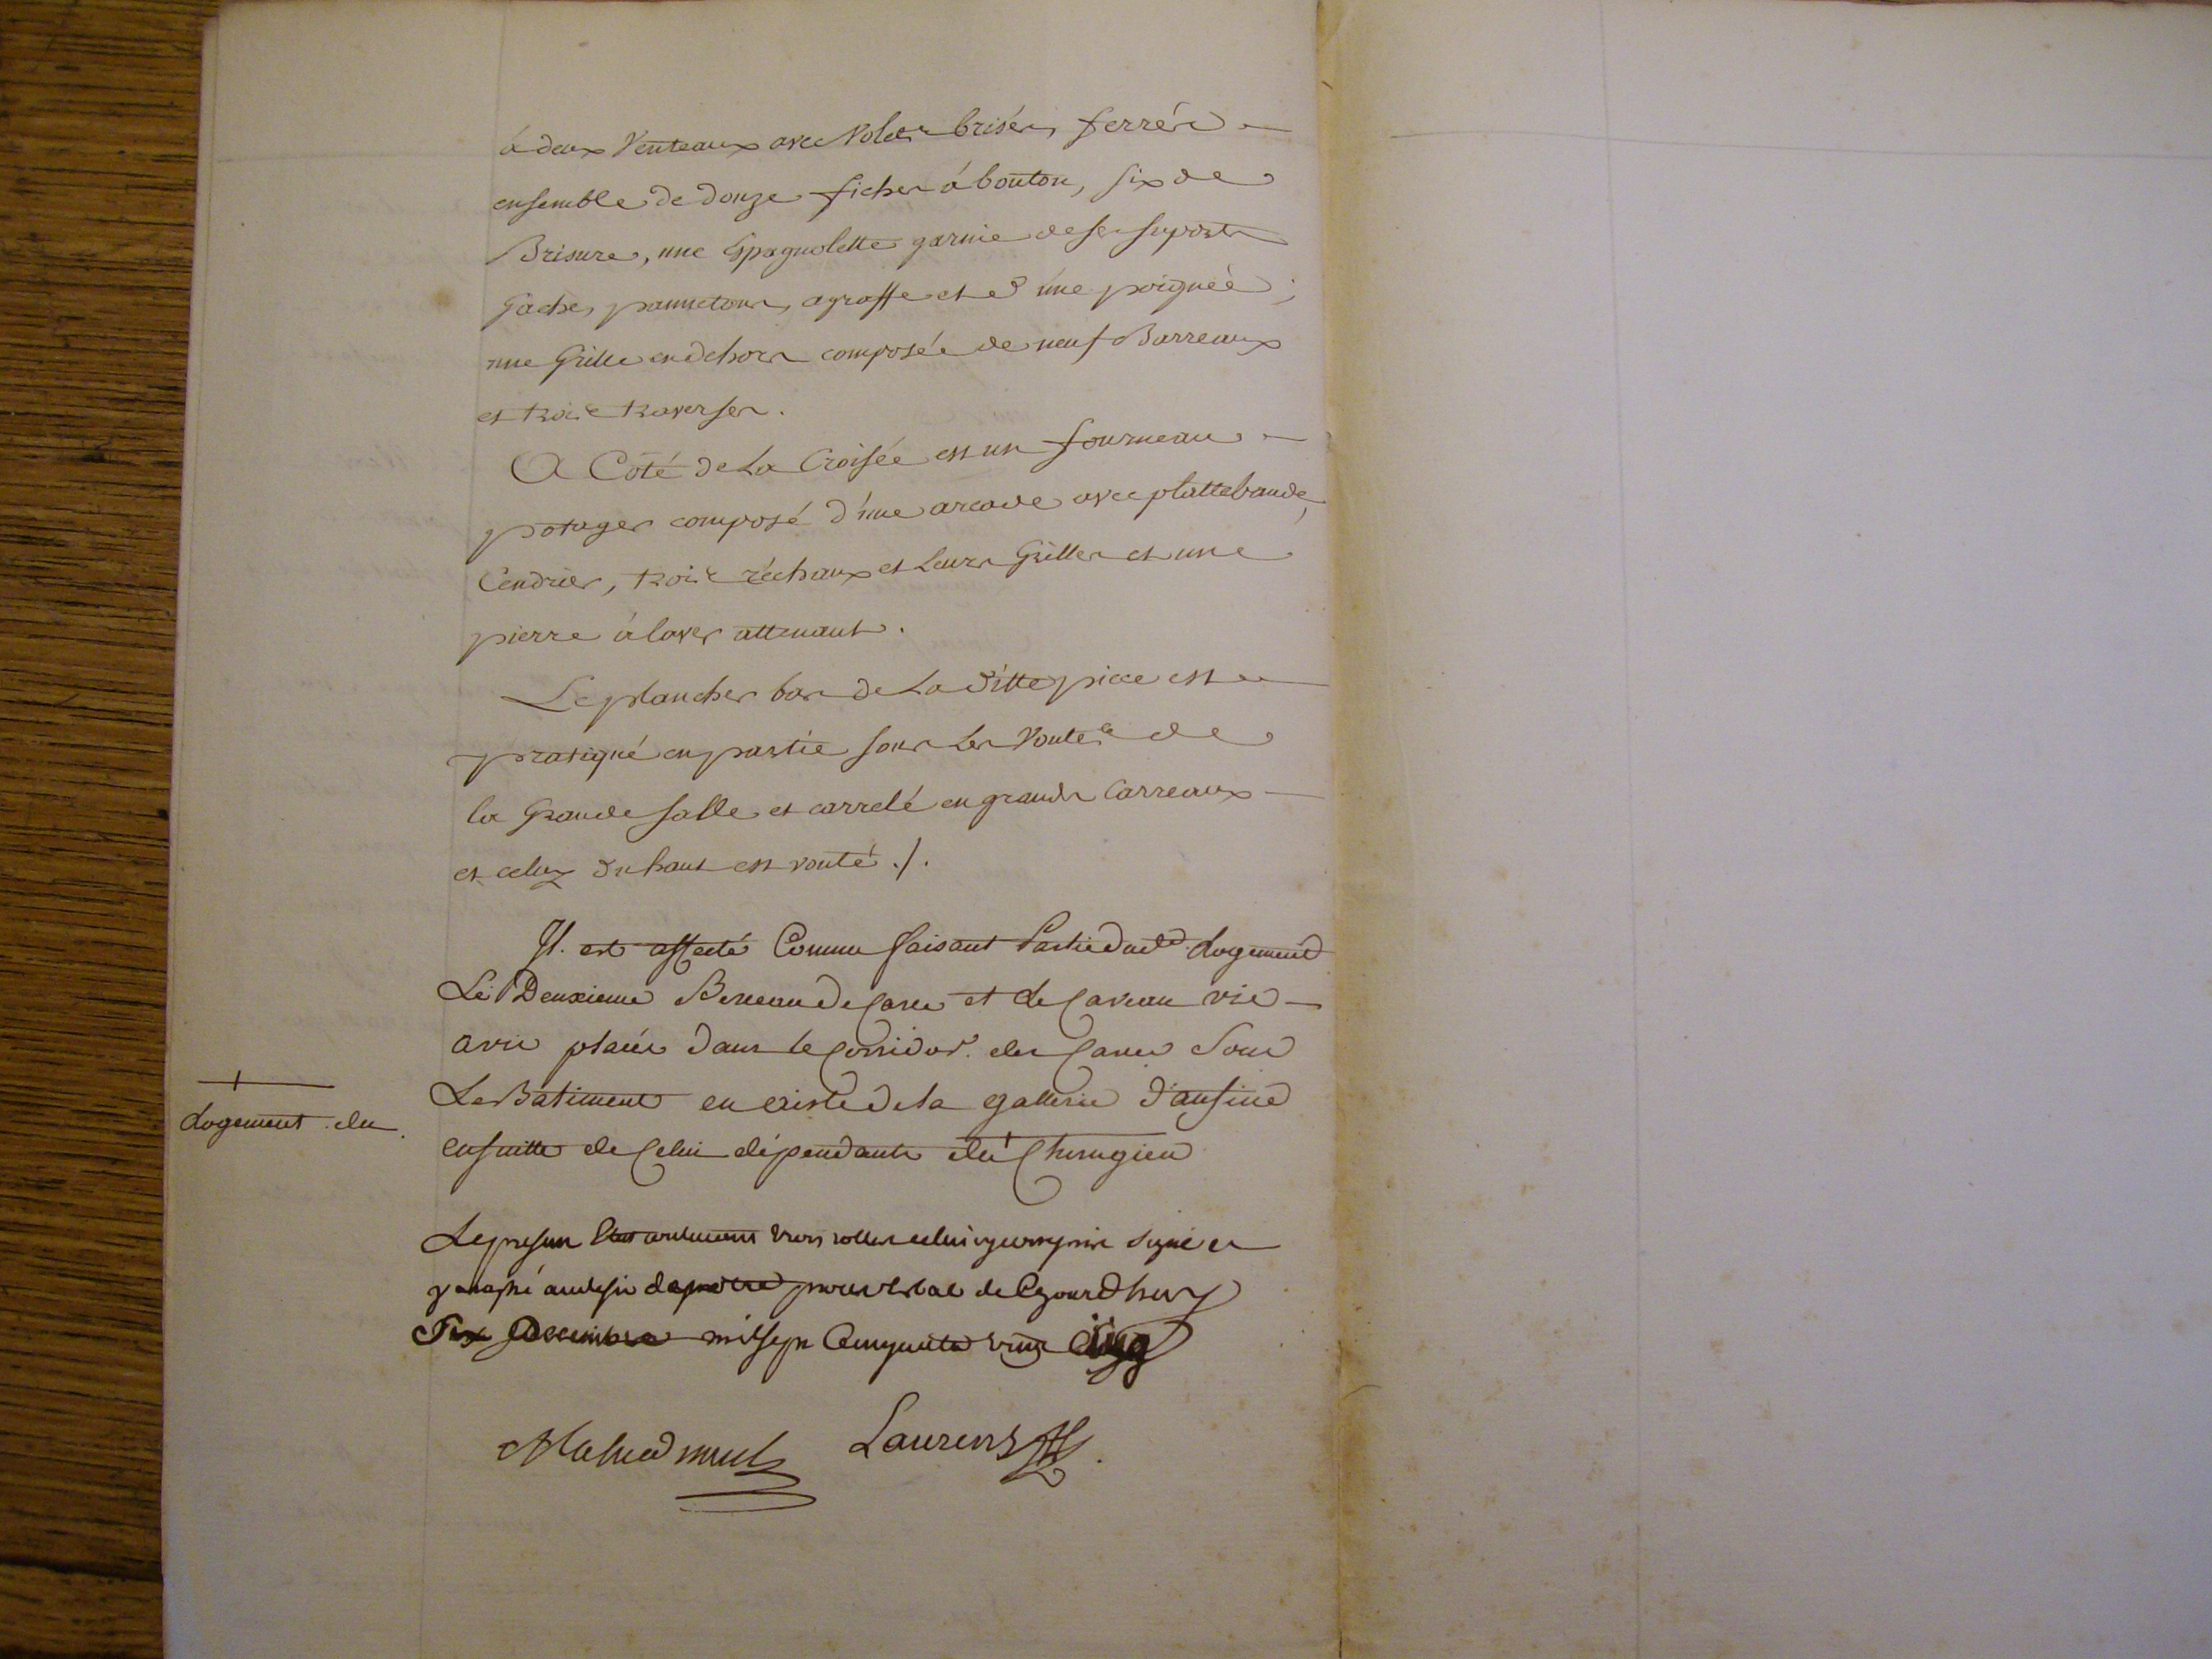 à deux Venteaux avec Volets brisés, ferrés
ensemble de douze fiches à bouton, six de
Brisure, une Espagnolette garnie de ses suports
Gache, pannetons, agraffe et d une poignée,
une Grille en dehors composée de neuf Barreaux
et trois traverses.
A Côté de La Croisée est un fourneau
potager composé d'une arcade avec plattebande,
Cendrier, trois réchaux et Leurs Grilles et une
pierre à laver attenant.
Le plancher bas de La ditte piece est
pratiqué en partie sous Les Voutes de
la Grande Salle et carrelé en grands Carreaux
et celuy du haut est vouté ./.
Il est affecté Comme faisant Partie dud. Logement
Le Deuxieme Berceau de Cave et de Caveau vis
avis placés dans le Corridor des Caves Sous
Le Batiment en de la gallerie
ensuitte de Celui dépendants du + Chirurgien
+
Logement du
Le present Etat contenant rolles celui cy compris signé et
paraphé au desir de notre procès verbal de Cejourdhuy
Six Decembre mil sept Cinquante cinq
Laurens